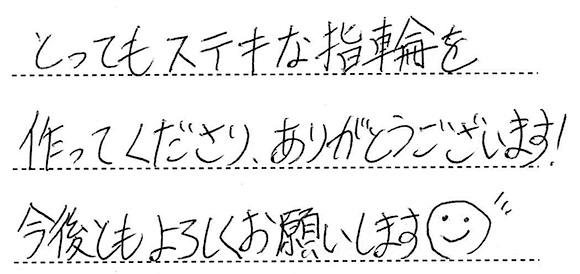 とってもステキな指輪を
作ってくださり、ありがとうございます!
今後ともよろしくお願いします